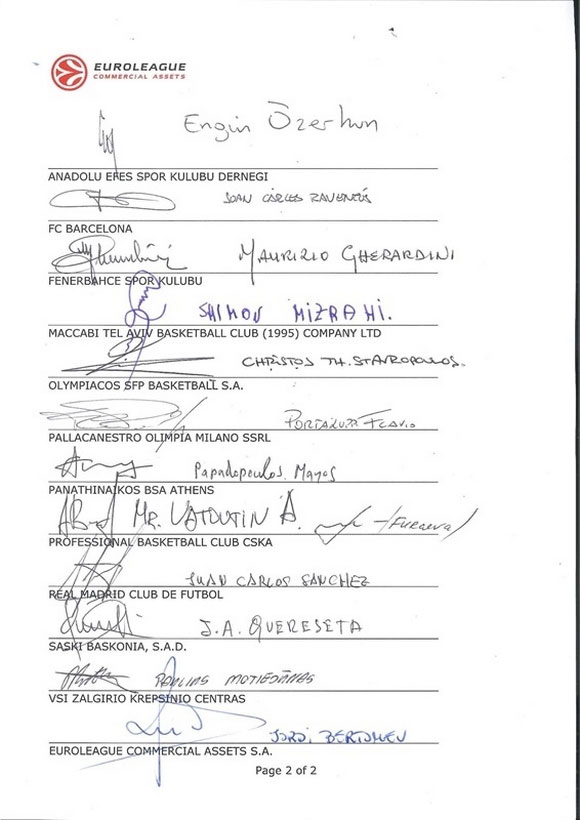 EUROLEAGUE
COMMERCIAL ASSETS
Engin Özerhun
ANADOLU EFES SPOR KULUBU DERNEGI
JOAN CARLES RAVENTÓS
FC BARCELONA
MAURIZIO GHERARDINI
FENERBAHCE SPOR KULUBU
SHIMON MIZRAHI.
MACCABI TEL AVIV BASKETBALL CLUB (1995) COMPANY LTD
CHRISTOS TH. STAVROPOULOS.
OLYMPIACOS SFP BASKETBALL S.A.
PORTALUPPI FLAVIO
PALLACANESTRO OLIMPIA MILANO SSRL
Papadopoulos Manos
PANATHINAIKOS BSA ATHENS
MR. VATOUTIN A.
PROFESSIONAL BASKETBALL CLUB CSKA
JUAN CARLOS SANCHEZ
REAL MADRID CLUB DE FUTBOL
J.A. QUERESETA
SASKI BASKONIA, S.A.D.
PAULIUS MOTIEJŪNAS
VSI ZALGIRIO KREPSINIO CENTRAS
JORDI BERTOMEU
EUROLEAGUE COMMERCIAL ASSETS S.A.
Page 2 of 2